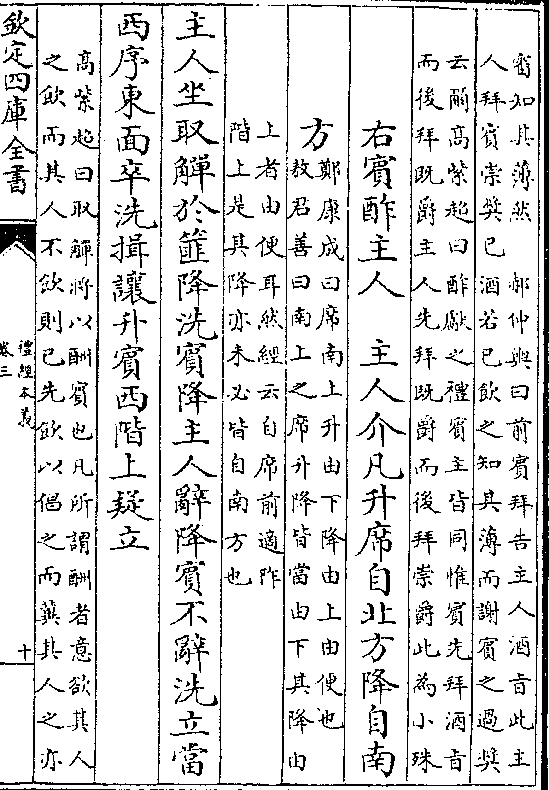 賓知其薄然　郝仲輿曰前賓拜告主人酒旨此主
人拜賓崇奬己酒若已飲之知其薄而謝賓之過奬
云爾高紫超曰酢獻之禮賓主皆同惟賓先拜酒旨
而後拜既爵主人先拜既爵而後拜崇爵此為小殊
右賓酢主人　主人介凡升席自北方降自南
方
鄭康成曰席南上升由下降由上由便也
敖君善曰南上之席升降皆當由下其降由
上者由便耳然經云自席前適阼
階上是其降亦未必皆自南方也
主人坐取觶於篚降洗賓降主人辭降賓不辭洗立當
西序東面卒洗揖讓升賓西階上疑立
高紫超曰取觶將以酬賓也凡所謂酬者意欲其人
之飲而其人不飲則已先飲以倡之而冀其人之亦
欽定四庫全書
禮經本義
卷三
十